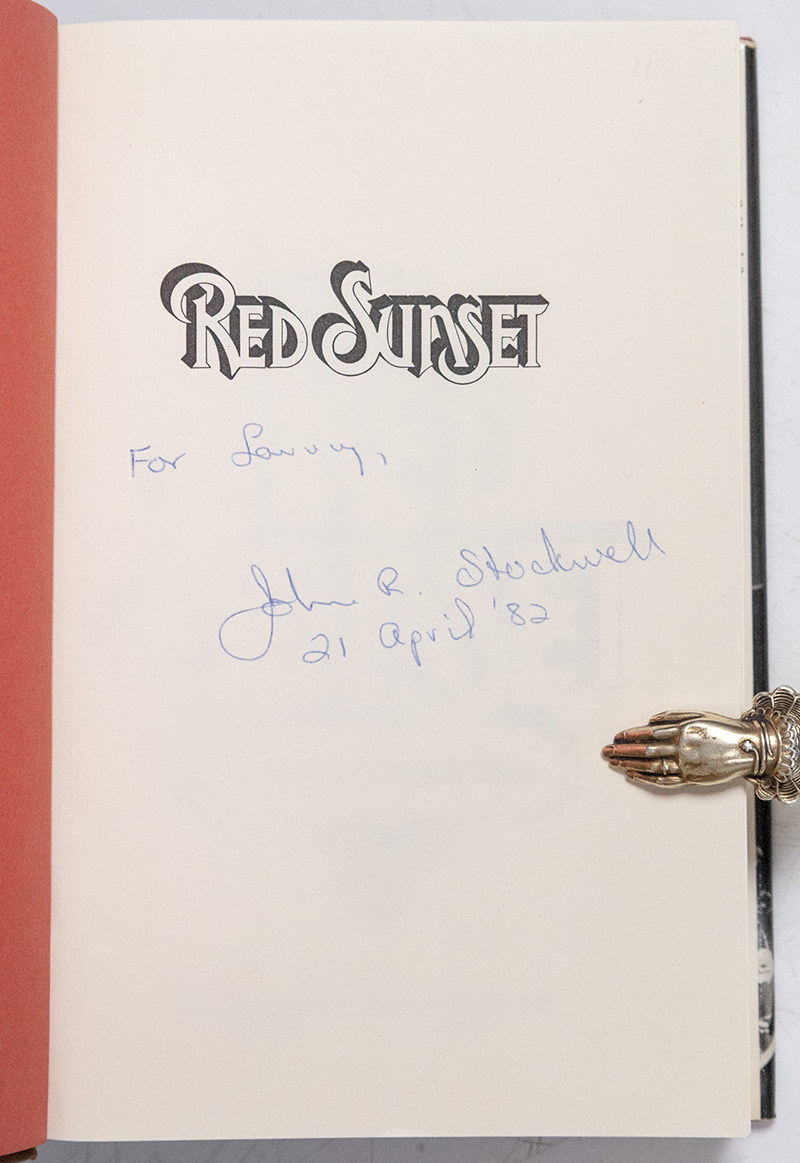 RED SUNSET
For Lanny,
John R. Stockwell
21 April '82